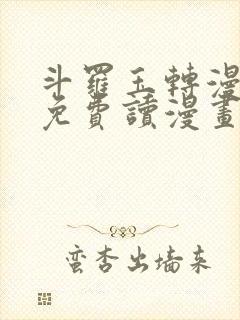 斗羅玉轉漫
免費讀漫畫
蛮杏出墙来